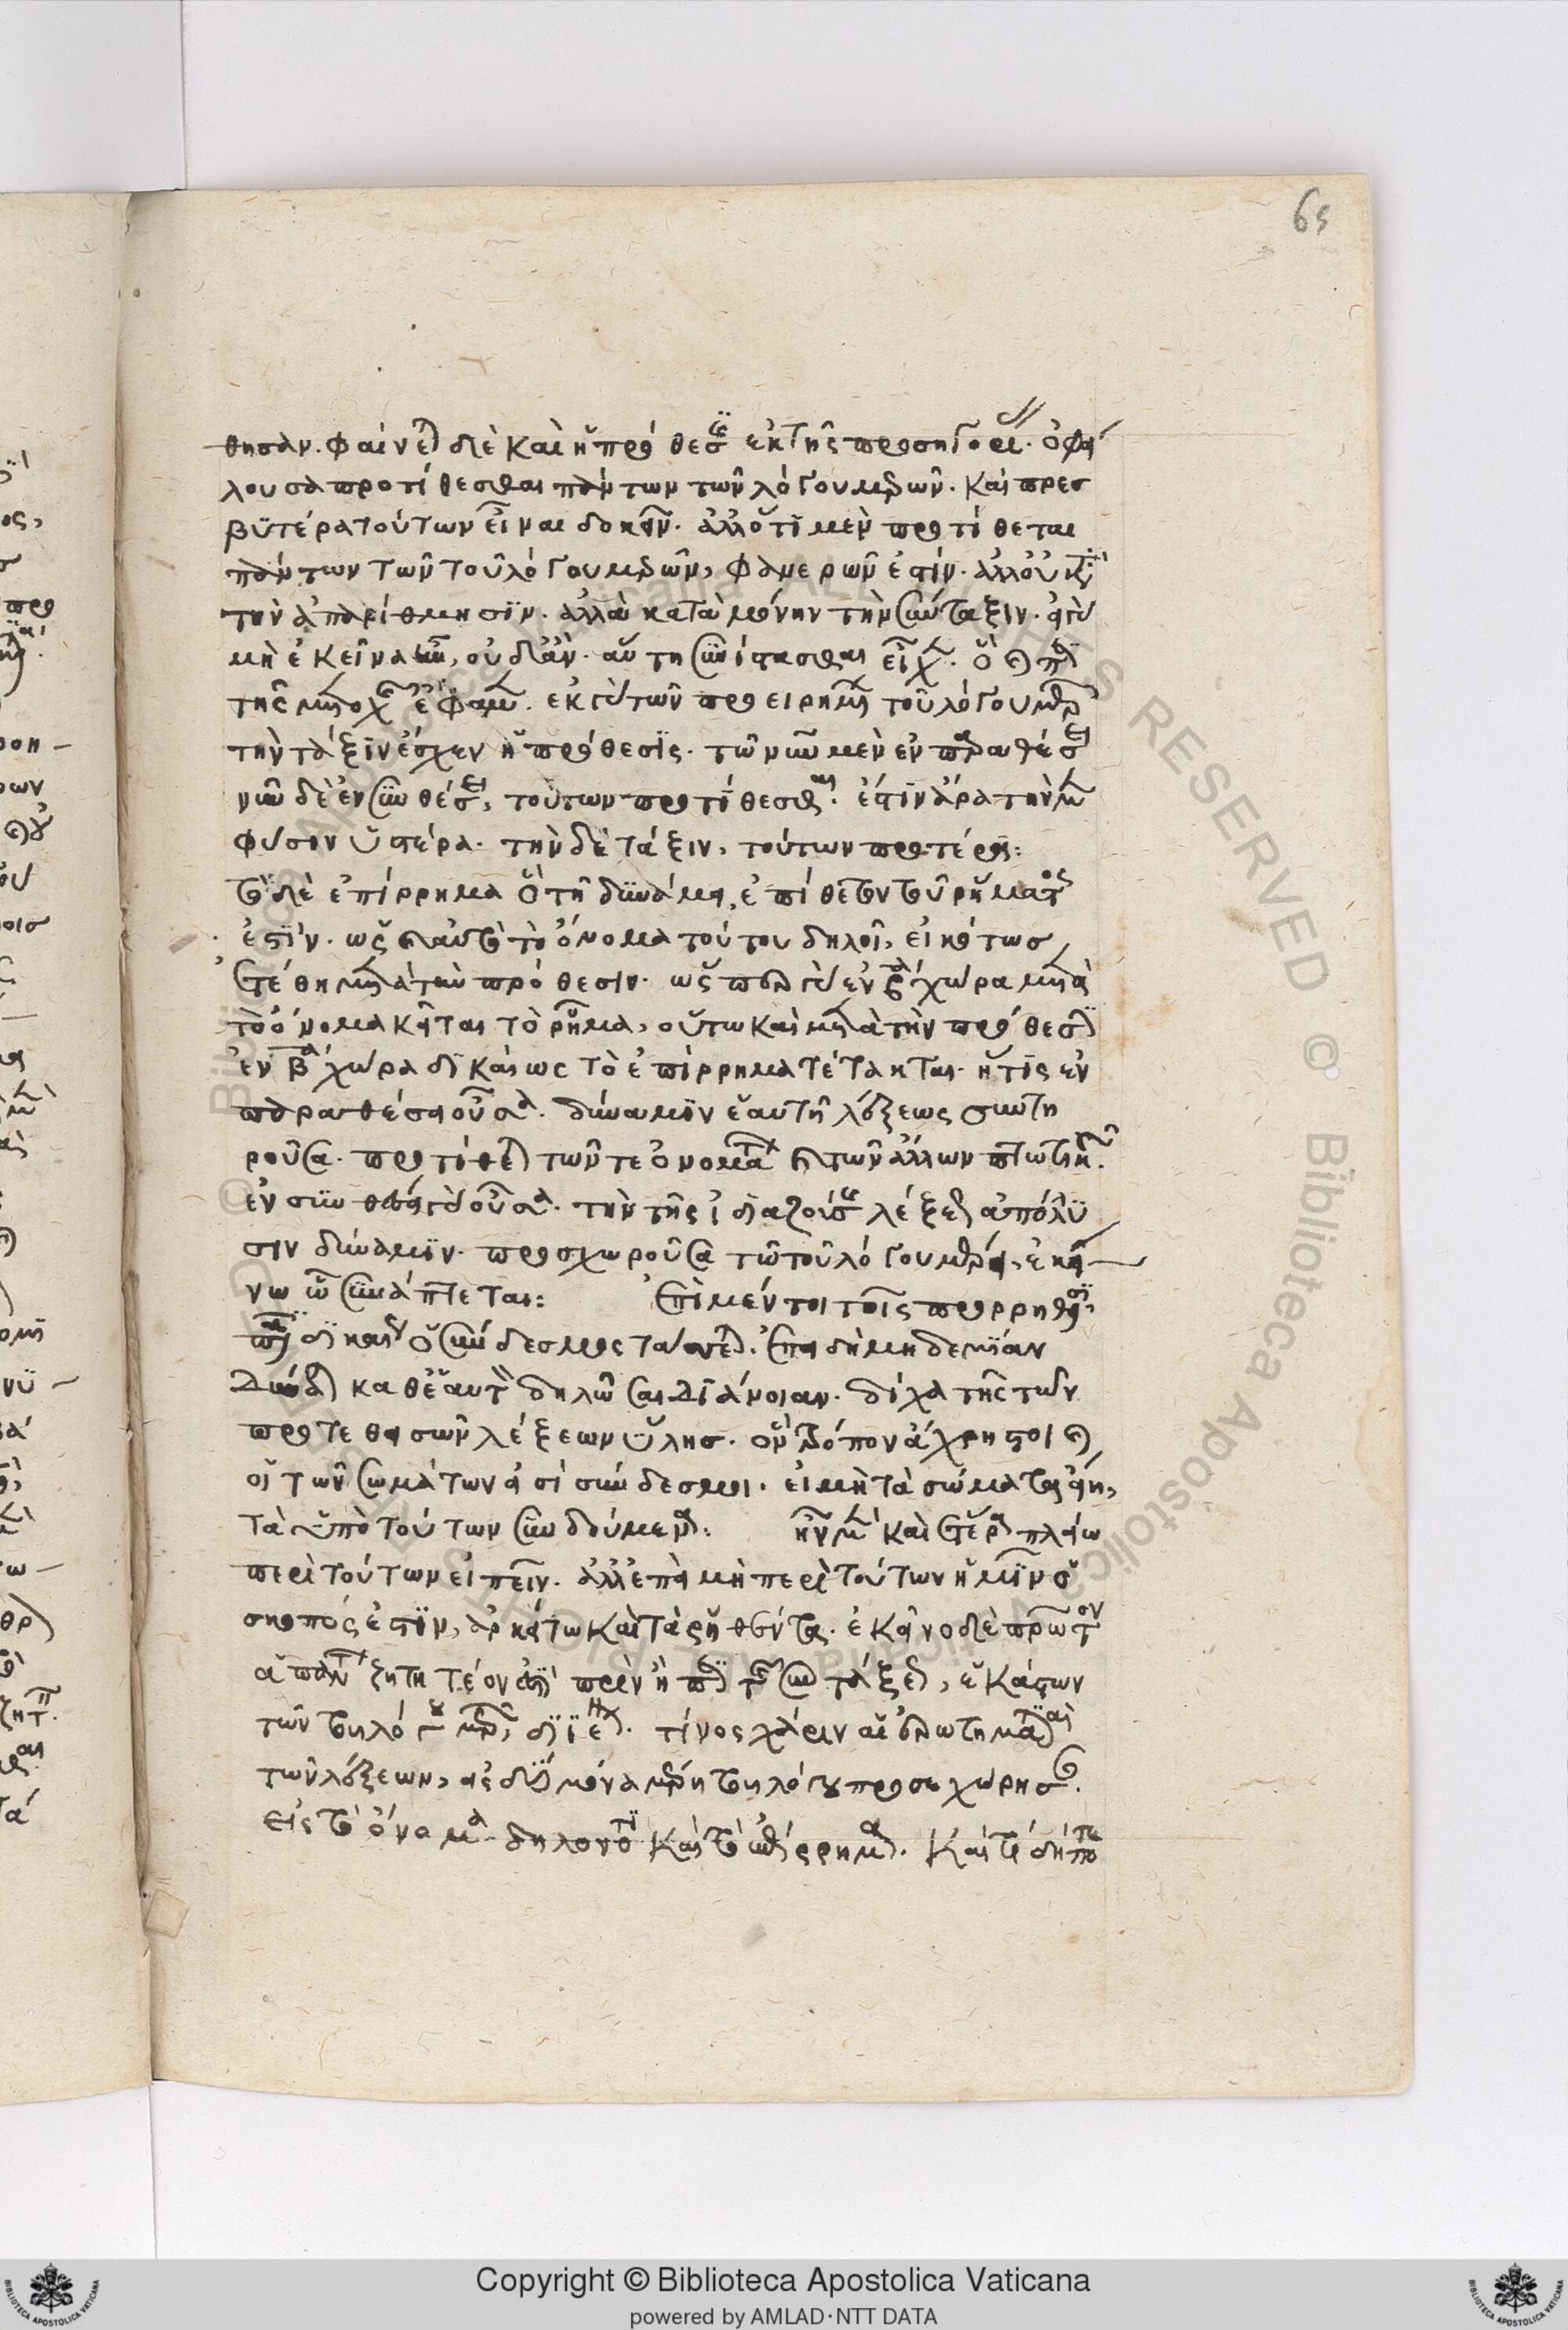 65
θησαν. φαίνεται δὲ καὶ ἡ πρόθεσις ἐκ τῆς προσηγορίας. ὀφεί
λουσα προτίθεσθαι πάντων τῶν λόγου μερῶν. καὶ πρεσ
βϋτέρα τούτων εἶναι δοκεῖν. ἀλλ' ὅτι μὲν προτίθεται
πάντων τῶν τοῦ λόγου μερῶν, φανερῶν ἐστίν. ἀλλ' οὐ κατὰ
τὴν ἀπαρίθμησϊν. ἀλλὰ κατὰ μόνην τὴν σύνταξιν. εἰ γὰρ
μὴ ἐκεῖνα ἦν, οὐδ' ἂν αὕτη συνίστασθαι εἶχεν. ὃ καὶ περὶ
τῆς μετοχῆς ἔφαμεν. ἐκ γὰρ τῶν προειρημένων τοῦ λόγου μερῶν
τὴν τάξϊν ἔσχεν ἡ πρόθεσϊς. τῶ νῦν μὲν ἐν παραθέσει
νῦν δὲ ἐν συνθέσει, τούτων προτίθεσθαι. ἔστϊν ἄρα τὴν μὲν
φύσιν ὑστέρα. τὴν δὲ τάξιν, τούτων προτέρα:
τὸ δὲ ἐπίρρημα ὃ τῆ δϋνάμει, ἐπίθετον τοῦ ῥήματος
ἐστϊν. ὡς καὶ αὐτὸ τὸ ὄνομα τούτου δηλοῖ, εἰκότως
ἐτέθη μετὰ τὴν πρόθεσιν. ὡς περ γὰρ ἐν βα χώρα μετὰ
τὸ ὄνομα κεῖται τὸ ῥῆμα, οὕτω καὶ μετὰ τὴν πρόθεσιν
ἐν βα χώρα δϊκαίως τὸ ἐπίρρημα τέτακται. ἥτις ἐν
παραθέσει οὖσα. δύναμϊν ἑαυτῆ λέξεως συντη
ροῦσα. προτίθεται τῶν τε ὀνομάτων καὶ τῶν ἄλλων πτωτικῶν.
ἐν συνθέσει δὲ οὖσα. τὴν τῆς ἰδιαζούσης λέξεως ἀπόλϋ
σιν δύναμϊν. προσχωροῦσα τῶ τοῦ λόγου μέρει, ἐκεί
νω ὧ συνάπτεται: Ἐπὶ μέντοι τοῖς προρρηθεῖσι,
πᾶσι δϊκαίως ὁ σύνδεσμος τάττεται. ἐπειδὴ μηδεμϊαν
δύναται καθ' ἑαυτὸν δηλῶσαι δϊάνοιαν. δίχα τῆς τῶν
προτεθεισῶν λέξεων ὕλης. ὃν τρόπον ἄχρηστοι καὶ
οἱ τῶν σωμάτων εἰσὶ σύνδεσμοι. εἰ μὴ τὰ σώματα εἴη,
τὰ ὑπὸ τούτων συνδούμενα: ἦν μὲν καὶ ἕτερα πλείω
περὶ τούτων εἰπεῖν. ἀλλ' ἐπεὶ μὴ περὶ τούτων ἡμῖν ὁ
σκοπός ἐστϊν, ἀρκείτω καὶ τὰ ῥηθέντα. ἐκεῖνο δὲ πρῶτον
ζητητέον πρὶν ἢ περὶ τῆς τάξεως, ἑκάστων
τῶν τοῦ λόγου μερῶν, τίνος χάριν αἱ ἐρωτηματικαὶ
τῶν λέξεων, εἰς δύο μόνα μέρη τοῦ λόγου προσεχώρησαν.
εἰς τὸ ὄνομα δηλονότι καὶ τὸ ἐπίρρημα. καὶ τί δήποτε
Copyright © Biblioteca Apostolica Vaticana
powered by AMLAD·NTT DATA